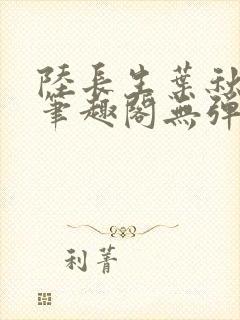 陸長生葉秋
筆趣閣無彈
利菁